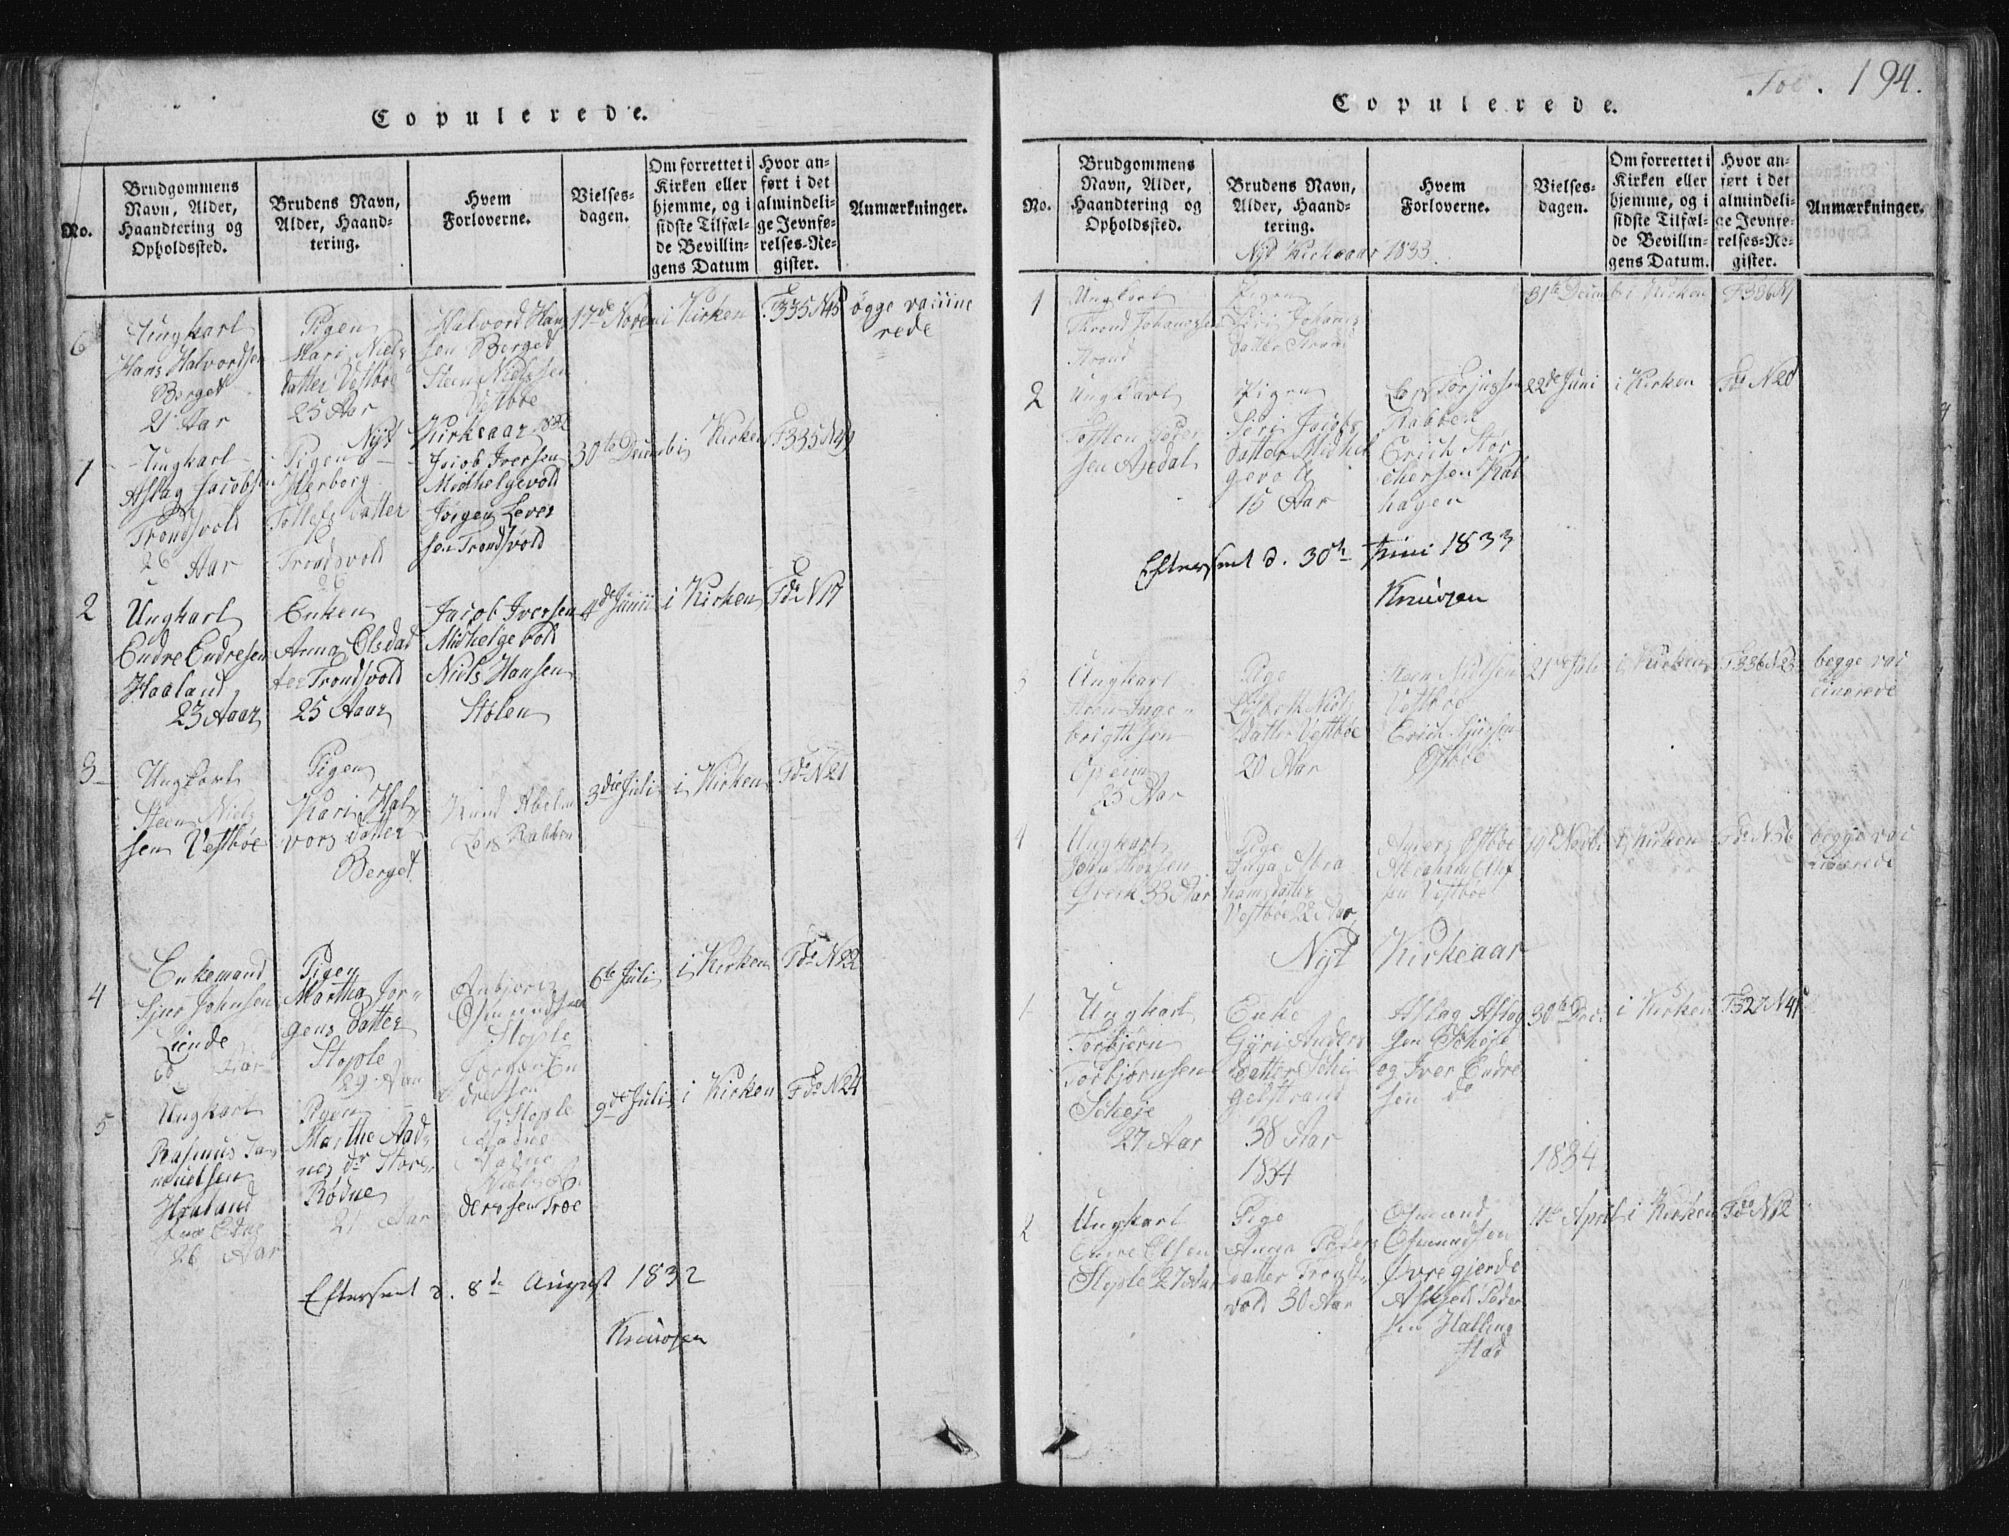 Copulerede.
No.
Brudgommens
Navn, Alder,
Haandtering og
Opholdssted.
Brudens Navn,
Alder, Haand-
tering.
Hvem
Forloverne.
Vielses-
dagen.
Om forrettet i
Kirken eller
hjemme, og i
sidste Tilfæl-
de Bevillin-
gens Datum
Hvor an-
ført i det
almindeli-
ge Jevnfø-
relses-Re-
gister.
Anmærkninger.
6
Ungkarl
Hans Halvordsen
Berget
21 Aar
Pigen
Mari Niels
datter Vestböe
25 Aar
Halvord Han
sen Berget
Steen Nielssen
Vestböe
17de Novem
i Kirken
F335 N45
øgge vaciine
rede
Nyt Kirkeaar 1832
1
Ungkarl
Aslag Jacobsen
Trondsvold
26 Aar
Pigen
Herborg
Tollefs datter
Trondsvold
26
Jacob Iversen
Midthelgevold
Jörgen Lever
sen Trondsvold
30te Decemb
i Kirken
F335 N49
2
Ungkarl
Endre Endresen
Haaland
23 Aaar
Enken
Anna Olsdat
ter Trondsvold
25 Aaar
Jacob Iversen
Midhelgevold
Niels Hansen
Stolen
4de Junii
i Kirken
Fdo N17
3
Ungkarl
Steen Niels
sen Vestböe
Pigen
Kari Hal
vors datter
Berget
Knud
Lars Rabben
3die Juli
i Kirken
Fdo N21
4
Enkemand
Sjur Johnsen
Liende
60 Aar
Pigen
Martha Jör-
gens datter
Stople
29 Aar
Anbjörn
Osmundsen
Stople
Jörgen En
dresen
Stople
6te Juli
i Kirken
Fdo N22
5
Ungkarl
Rasmus Sa
muelsen
Haaland
26 Aar
Pigen
Marthe Aad
nes dr Store
Rödne
21 Aar
Aadne
dersen Troe
9de Juli
i Kirken
Fdo N24
Efterseet d. 8de August 1832
Knudsen
Fol. 194.
Copulerede.
No.
Brudgommens
Navn, Alder,
Haandtering og
Opholdssted.
Brudens Navn,
Alder, Haand-
tering.
Hvem
Forloverne.
Vielses-
dagen.
Om forrettet i
Kirken eller
hjemme, og i
sidste Tilfæl-
de Bevillin-
gens Datum.
Hvor an-
ført i det
almindeli-
ge Jevnfø-
relses-Re-
gister.
Anmærkninger.
Nyt Kirkeaar 1833
1
Ungkarl
Thrond Johannssen
Strand
Pigen
Siri Johans
datter Strand
31te Decemb
i Kirken
F336 N1
2
Ungkarl
Tosten Peder
sen Axdal
Pigen
Siri Jacobs
datter Midhel
gevold
15 Aar
Lars Torjussen
Rabben
Erich Stör
chersen Kal
hagen
22de Juni
i Kirken
Fdo N20
Efterseet d. 30te Juni 1833
Knudsen
3
Ungkarl
Steen Inge-
brigthsen
Opeim
25 Aar
Pige
Lisbeth Niels
datter Vestböe
20 Aar
Steen Nielsen
Vestböe
Erich Sjursen
Ostböe
21de Juli
i Kirken
F336 N23
begge vac
cinerede
4
Ungkarl
John Thorsen
33 Aar
Pige
Inga Abra
hams datter
Vestböe 22 Aar
Anders Ostböe
Abraham Ols
sen Vestböe
19de Novbr
i Kirken
Fdo N36
begge vac
cinerede
Nyt Kirkeaar
1
Ungkarl
Torbjörn
Torbjörnsen
Scheje
27 Aar
Enke
Gyri Anders
datter Schi
gelstrand
38 Aar
Aslag Aslag
sen Scheje
og Iver Endre
sen do
30te Dec.
i Kirken
F327 N41
1834
1834
2
Ungkarl
Endre Olsen
Stople 27 Aar
Pige
Anna Peders
datter Tronds
vold 30 Aar
Osmund
Osmundsen
Øvregjerde
Askjeld Peder
sen Halleng
stad
4de April
i Kirken
Fdo N12